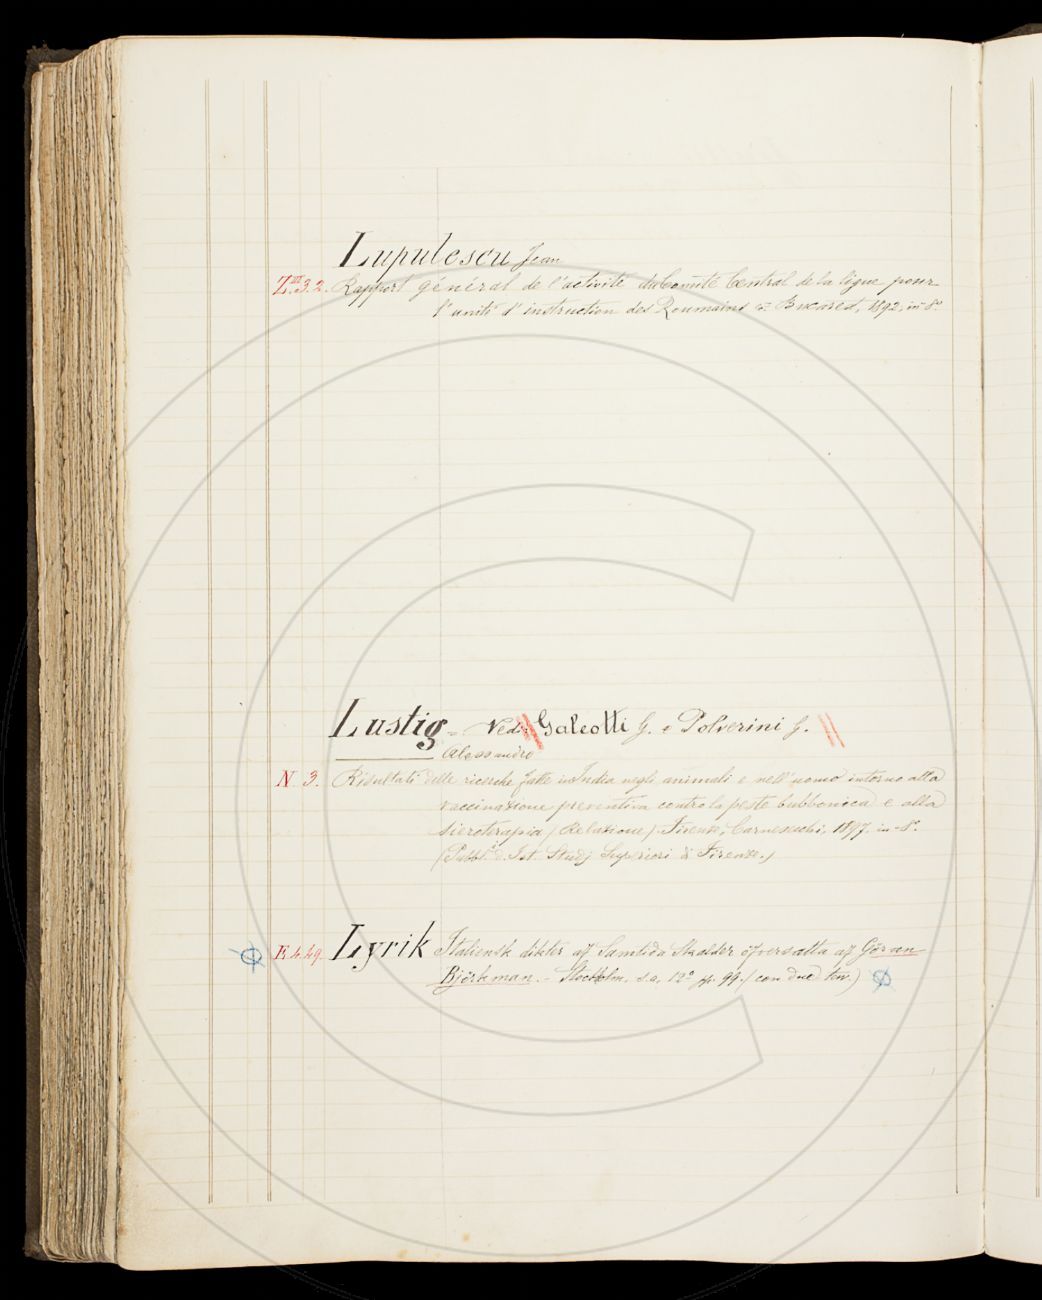 Lupulescu Jean
Z.III.3.2. Rapport général de l'activité du Comité Central de la ligue pour
l'unité d'instruction des Roumains = Bucarest, 1892, in-8º
Lustig = Ved: Galeotti G. e Polverini G.
Alessandro
N. 3. Risultati delle ricerche fatte in India negli animali e nell'uomo intorno alla
vaccinazione preventiva contro la peste bubbonica e alla
sieroterapia (Relazione) Firenze, Carnesecchi, 1897. in-8º.
(Pubbl. Ist. Studj Superiori di Firenze.)
F.4.49. Lyrik Italiensk dikter af Samtida Skalder öfversatta af Göran
Björkman. - Stockholm, s.a. 12º pp. 99. (con due